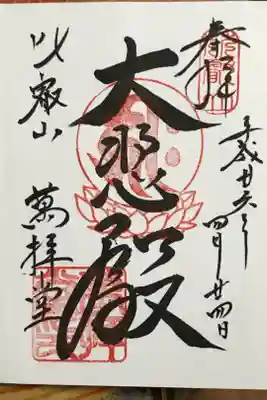 奉拝
平成廿六年
四月廿四日
大悲殿
比叡山
萬拝堂